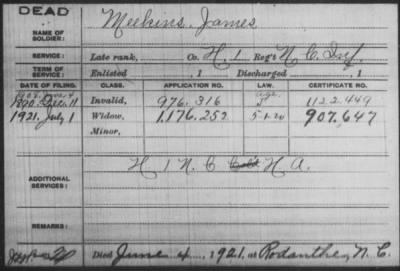 DEAD
NAME OF SOLDIER: Meekins, James
SERVICE: Late rank, Co. H, 1 Reg't N. C. Inf.
TERM OF SERVICE: Enlisted , 1 Discharged , 1
DATE OF FILING. CLASS. APPLICATION NO. LAW. CERTIFICATE NO.
1890. Dec. 11 Invalid, 976.316 1122.449
1921. July 1 Widow, 1.176.252 5-1-20 907.647
Minor,
ADDITIONAL SERVICES: H 1 N. C. H. A.
REMARKS:
Died June 4, 1921, at Rodanthe, N. C.